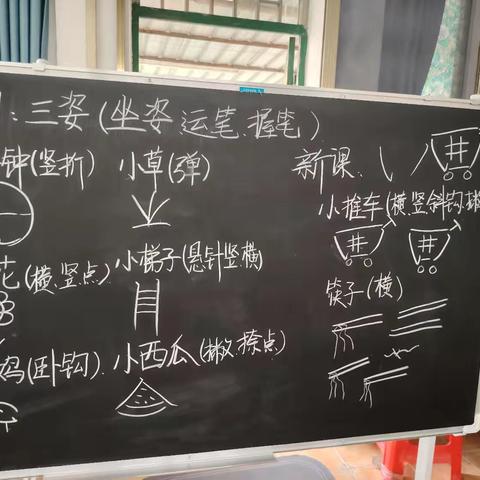 ：三姿(坐姿 运笔 握笔)
钟(竖折) 小草(弹) 新课：
小推车(横.竖斜钩.
花(横.竖点) 小梯子(悬针竖横) 筷子(横)
(卧钩) 小西瓜(撇.捺点)